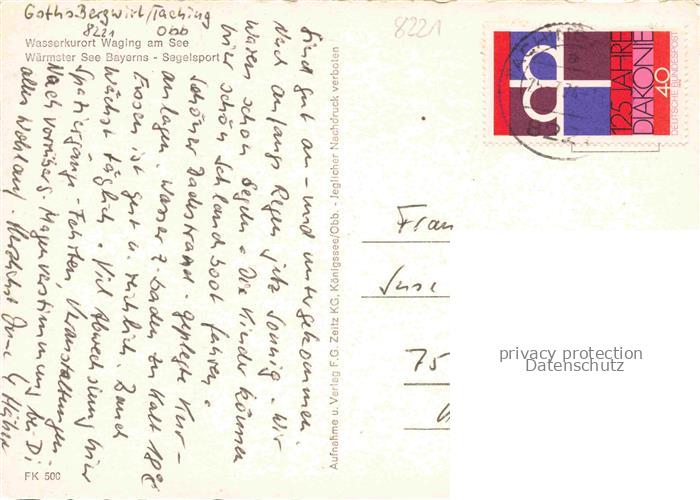 Gasth. Bergwirt/Taching
8221 Obb
Wasserkurort Waging am See
Wärmster See Bayerns - Segelsport
8221
125 JAHRE
DIAKONIE
40
DEUTSCHE BUNDESPOST
Sind gut an- und untergekommen.
Nach anfangs Regen jetz sonnig. Wir
waren schon Segeln. Die Kinder können
hier schön Schlauchboot fahren.
Schöner Badestrand - gepflegte Kur-
anlagen. Wasser z. baden zu kalt 18°
Essen ist gut u. reichlich. Bauch
wächst täglich. Viel Abwechslung hier
Spaziergänge - Fahrten, Veranstaltungen.
Nach vorüberg. Magenverstimmung bei Di
alles wohlauf. Herzlichst
Aufnahme u. Verlag F.G. Zeitz KG, Königssee/Obb. - Jeglicher Nachdruck verboten
Fran
Suse
75
privacy protection
Datenschutz
FK 500